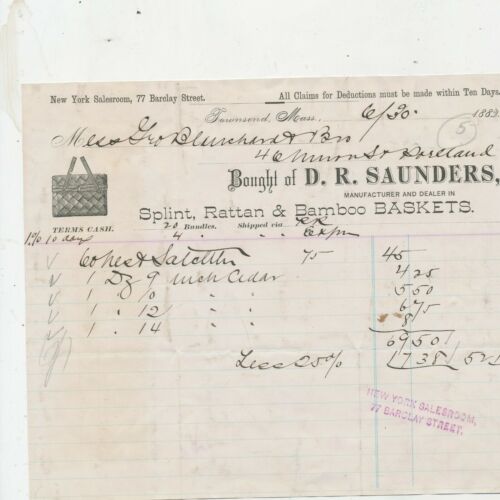 New York Salesroom, 77 Barclay Street. All Claims for Deductions must be made within Ten Days.
Townsend, Mass., 6/30. 1883
5
Mess Geo Blanchard & Bro
46 Union St Portland
Bought of D. R. SAUNDERS,
MANUFACTURER AND DEALER IN
Splint, Rattan & Bamboo BASKETS.
TERMS CASH. 20 Bundles. Shipped via
1% 10 days 4 " "
75 45
1 Dz 9 inch Cedar 4 25
1 " 10 " " 5 50
1 " 12 " " 6 75
1 " 14 " " 8
69 50
Less 25% 17 38
NEW YORK SALESROOM,
77 BARCLAY STREET.